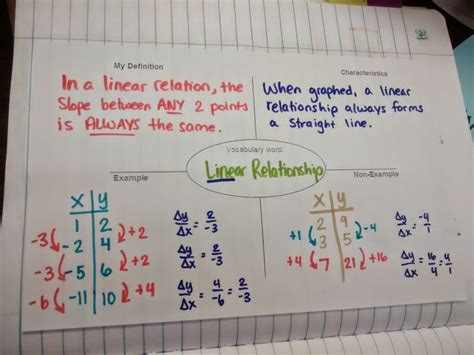 My Definition
In a linear relation, the
slope between ANY 2 points
is ALWAYS the same.
Characteristics
When graphed, a linear
relationship always forms
a straight line.
Vocabulary word:
Linear Relationship
Example
x y
1 2
-2 4
-5 6
-11 10
-3
-3
-6
+2
+2
+4
Δy/Δx = 2/-3
Δy/Δx = 2/-3
Δy/Δx = 4/-6 = 2/-3
Non-Example
x y
2 9
3 5
7 21
+1
+4
-4
+16
Δy/Δx = -4/1
Δy/Δx = 16/4 = 4/1